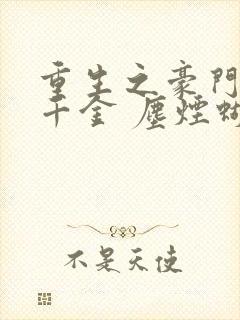 重生之豪門
千金 塵煙蝴
不是天使